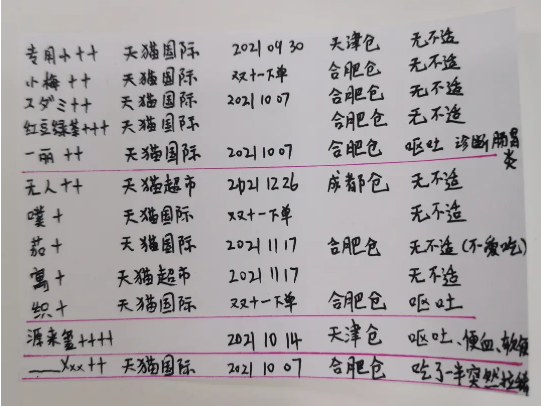 专用小++ 天猫国际 2021 09 30 天津仓 无不适
小梅++ 天猫国际 双十一下单 合肥仓 无不适
スダミ++ 天猫国际 2021 10 07 合肥仓 无不适
红豆绿茶+++ 天猫国际 合肥仓 无不适
一丽++ 天猫国际 2021 10 07 合肥仓 呕吐 诊断肠胃炎
无人++ 天猫超市 2021 12 26 成都仓 无不适
噗+ 天猫国际 双十一下单 无不适
茄+ 天猫国际 2021 11 17 合肥仓 无不适(不爱吃)
天猫超市 2021 11 17 无不适
织+ 天猫国际 双十一下单 合肥仓 呕吐
源来玺++++ 2021 10 14 天津仓 呕吐、便血、软便
__Xxx++ 天猫国际 2021 10 07 合肥仓 吃了一半突然拉稀